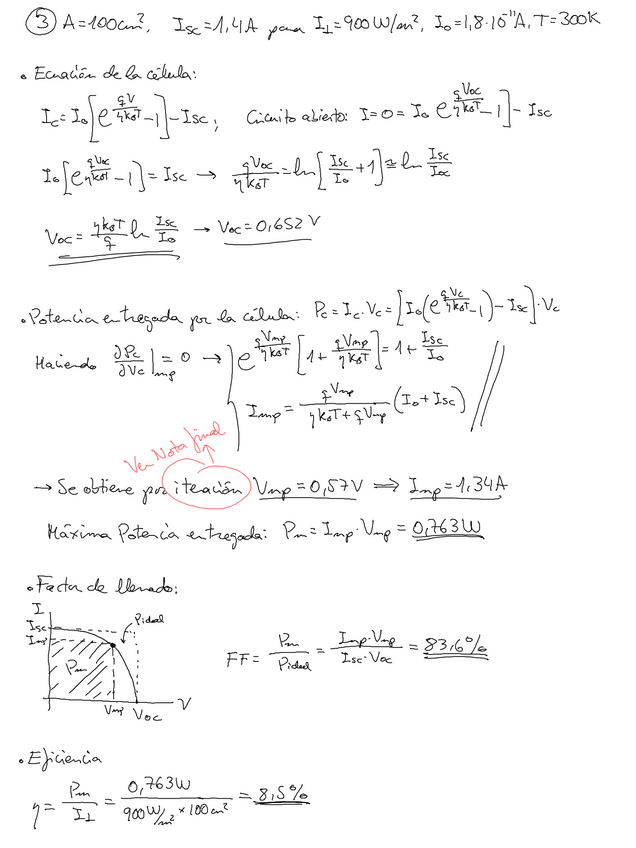 ③ A=100cm², Isc=1,4A para I⊥=900W/m², I₀=1,8·10⁻¹¹A, T=300K
• Ecuación de la célula:
Ic=I₀[e^(qV/ηk_BT)-1]-Isc; Circuito abierto: I=0=I₀ e^(qVoc/ηk_BT)-1]-Isc
I₀[e^(qVoc/ηk_BT)-1]=Isc → qVoc/ηk_BT=ln[Isc/I₀+1]≅ln Isc/I₀
Voc=ηk_BT/q ln Isc/I₀ → Voc=0,652V
• Potencia entregada por la célula: Pc=Ic·Vc=[I₀(e^(qVc/ηk_BT)-1)-Isc]·Vc
Haciendo ∂Pc/∂Vc|mp=0 → e^(qVmp/ηk_BT)[1+qVmp/ηk_BT]=1+Isc/I₀
Imp=qVmp/(ηk_BT+qVmp)(I₀+Isc)
Ver Nota final
→ Se obtiene por iteración Vmp=0,57V ⇒ Imp=1,34A
Máxima Potencia entregada: Pm=Imp·Vmp=0,763W
• Factor de llenado:
I
Isc
Pideal
Imp
Pm
Vmp Voc V
FF=Pm/Pideal=Imp·Vmp/Isc·Voc=83,6%
• Eficiencia
η=Pm/I⊥=0,763W/900W/m²×100cm²=8,5%